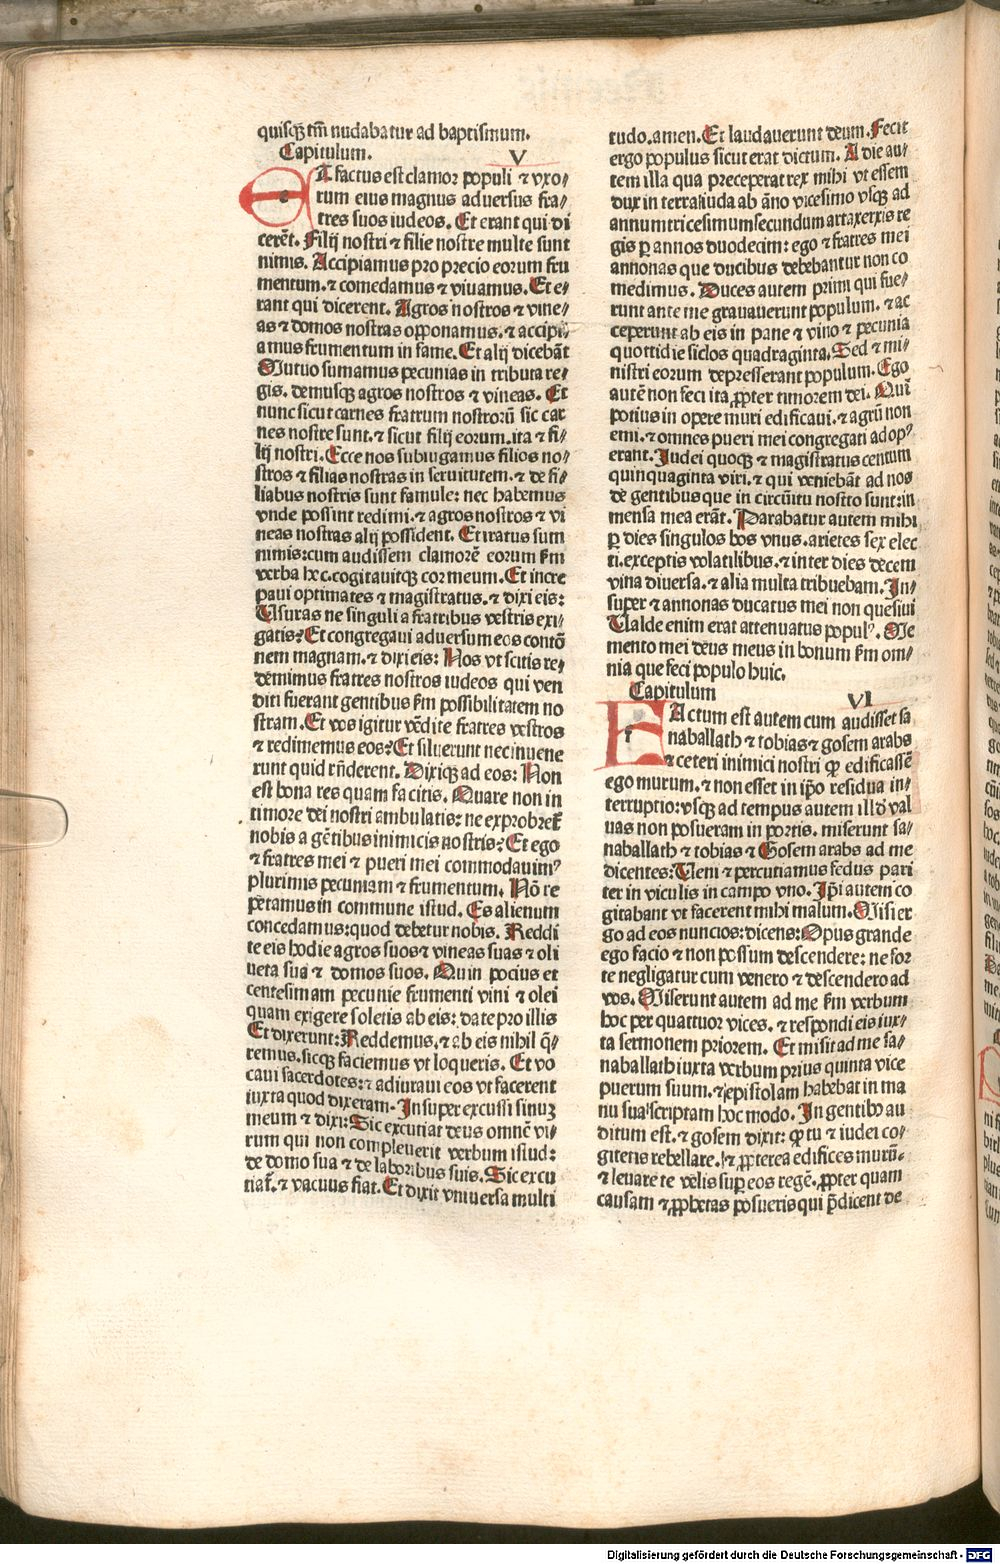 quisq₃ tm̄ nudabatur ad baptismum.
Capitulum. V
ET factus est clamor populi ⁊ vxo⸗
rum eius magnus aduersus fra⸗
tres suos iudeos. Et erant qui di
cerēt. Filij nostri ⁊ filie nostre multe sunt
nimis. Accipiamus pro precio eorum fru
mentum. ⁊ comedamus ⁊ viuamus. Et e⸗
rant qui dicerent. Agros nostros ⁊ vine⸗
as ⁊ domos nostras opponamus. ⁊ accipi⸗
amus frumentum in fame. Et alij dicebāt
Mutuo sumamus pecunias in tributa re⸗
gis. demusq₃ agros nostros ⁊ vineas. Et
nunc sicut carnes fratrum nostrorū sic car
nes nostre sunt. ⁊ sicut filij eorum. ita ⁊ fi⸗
lij nostri. Ecce nos subiugamus filios no⸗
stros ⁊ filias nostras in seruitutem. ⁊ de fi⸗
liabus nostris sunt famule: nec habemus
vnde possint redimi. ⁊ agros nostros ⁊ vi
neas nostras alij possident. Et iratus sum
nimis: cum audissem clamorē eorum ẜm
verba hec. cogitauitq₃ cor meum. Et incre
paui optimates ⁊ magistratus. ⁊ dixi eis:
Usuras ne singuli a fratribus vestris exi⸗
gatis? Et congregaui aduersum eos contō
nem magnam. ⁊ dixi eis: Nos vt scitis re⸗
demimus fratres nostros iudeos qui ven
diti fuerant gentibus ẜm possibilitatem no
stram. Et vos igitur vēdite fratres vestros
⁊ redimemus eos? Et siluerunt nec inuene
runt quid rn̄derent. Dixiq₃ ad eos: Non
est bona res quam facitis. Quare non in
timore dei nostri ambulatis: ne exprobret̄
nobis a gētibus inimicis nostris? Et ego
⁊ fratres mei ⁊ pueri mei commodauim⁹
plurimis pecuniam ⁊ frumentum. Nō re
petamus in commune istud. Es alienum
concedamus: quod debetur nobis. Reddi
te eis hodie agros suos ⁊ vineas suas ⁊ oli
ueta sua ⁊ domos suos. Quin pocius et
centesimam pecunie frumenti vini ⁊ olei
quam exigere soletis ab eis: date pro illis
Et dixerunt: Reddemus. ⁊ ab eis nihil q̄⸗
remus. sicq₃ faciemus vt loqueris. Et vo
caui sacerdotes: ⁊ adiuraui eos vt facerent
iuxta quod dixeram. Insuper excussi sinuz
meum ⁊ dixi: Sic excutiat deus omnē vi⸗
rum qui non compleuerit verbum istud:
de domo sua ⁊ de laboribus suis. Sic excu
tiat̄. ⁊ vacuus fiat. Et dixit vniuersa multi
tudo. amen. Et laudauerunt deum. Fecit
ergo populus sicut erat dictum. A die au⸗
tem illa qua preceperat rex mihi vt essem
dux in terra iuda ab āno vicesimo vsq₃ ad
annum tricesimumsecundum artaxerxis re
gis ꝑ annos duodecim: ego ⁊ fratres mei
annonas que ducibus debebantur non co
medimus. Duces autem primi qui fue⸗
runt ante me grauauerunt populum. ⁊ ac
ceperunt ab eis in pane ⁊ vino ⁊ pecunia
quottidie siclos quadraginta. Sed ⁊ mi⸗
nistri eorum depresserant populum. Ego
autē non feci ita ꝓpter timorem dei. Quī
potius in opere muri edificaui. ⁊ agrū non
emi. ⁊ omnes pueri mei congregati ad op⁹
erant. Iudei quoq₃ ⁊ magistratus centum
quinquaginta viri. ⁊ qui veniebāt ad nos
de gentibus que in circūitu nostro sunt: in
mensa mea erāt. Parabatur autem mihi
ꝑ dies singulos bos vnus. arietes sex elec
ti. exceptis volatilibus. ⁊ inter dies decem
vina diuersa. ⁊ alia multa tribuebam. In⸗
super ⁊ annonas ducatus mei non quesiui
Ualde enim erat attenuatus popul⁹. Me
mento mei deus meus in bonum ẜm om⸗
nia que feci populo huic.
Capitulum VI
FActum est autem cum audisset sa
naballath ⁊ tobias ⁊ gosem arabs
⁊ ceteri inimici nostri ꝙ edificassē
ego murum. ⁊ non esset in ip̄o residua in⸗
terruptio: vsq₃ ad tempus autem illd̄ val
uas non posueram in portis. miserunt sa⸗
naballath ⁊ tobias ⁊ Gosem arabs ad me
dicentes: Ueni ⁊ percutiamus fedus pari
ter in viculis in campo vno. Ip̄i autem co
gitabant vt facerent mihi malum. Misi er
go ad eos nuncios: dicens: Opus grande
ego facio ⁊ non possum descendere: ne for
te negligatur cum venero ⁊ descendero ad
vos. Miserunt autem ad me ẜm verbum
hoc per quattuor vices. ⁊ respondi eis iux⸗
ta sermonem priorem. Et misit ad me sa⸗
naballath iuxta verbum prius quinta vice
puerum suum. ⁊ epistolam habebat in ma
nu sua scriptam hoc modo. In gentibꝰ au
ditum est. ⁊ gosem dixit: ꝙ tu ⁊ iudei co⸗
gitetis rebellare. ⁊ ꝓpterea edifices murū⸗
⁊ leuare te velis suꝑ eos regē. ꝓpter quam
causam ⁊ ꝓphetas posueris qui p̄dicent de
Digitalisierung gefördert durch die Deutsche Forschungsgemeinschaft - DFG